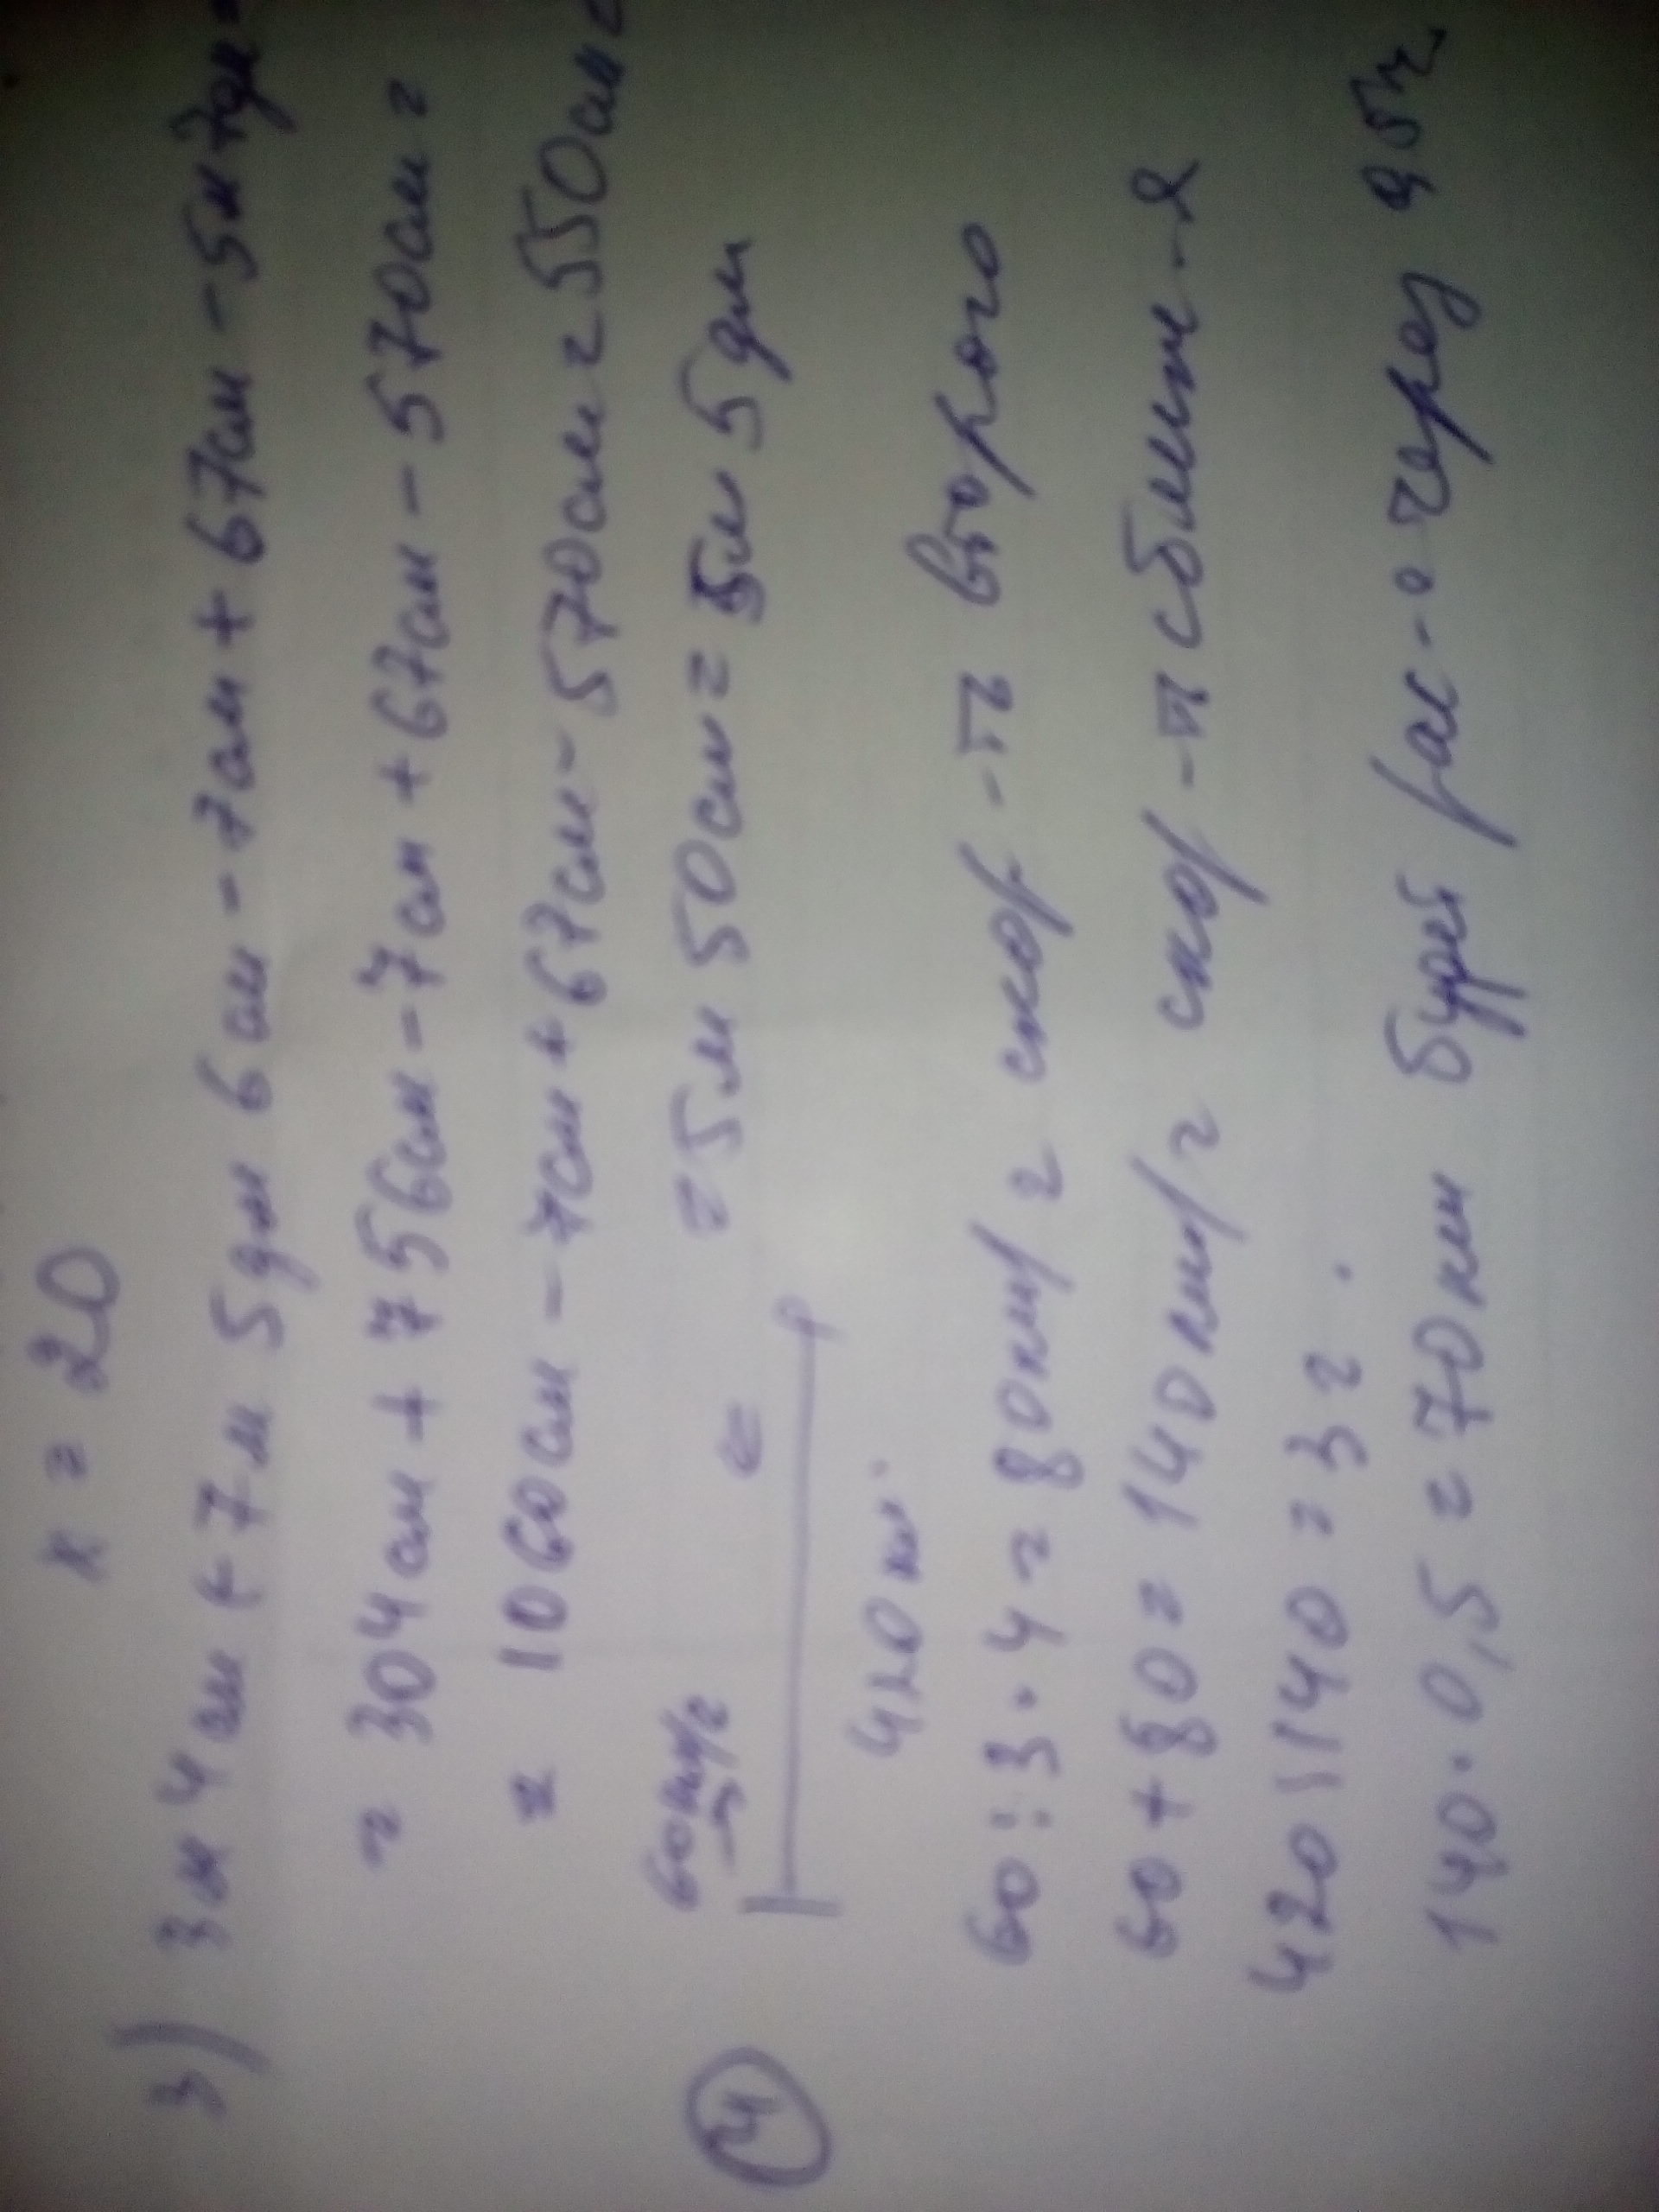 х = 20
3) 3м 4см + 7м 5дм 6см - 7см + 67см - 5м 7дм =
= 304см + 756см - 7см + 67см - 570см =
= 1060см - 7см + 67см - 570см = 550см =
= 5м 50см = 5м 5дм
4
60км/ч
420км.
60 : 3 · 4 = 80км/ч скор-ть второго
60 + 80 = 140км/ч скор-ть сближ-я
420 : 140 = 3ч.
140 · 0,5 = 70км будет рас-е через 0,5ч